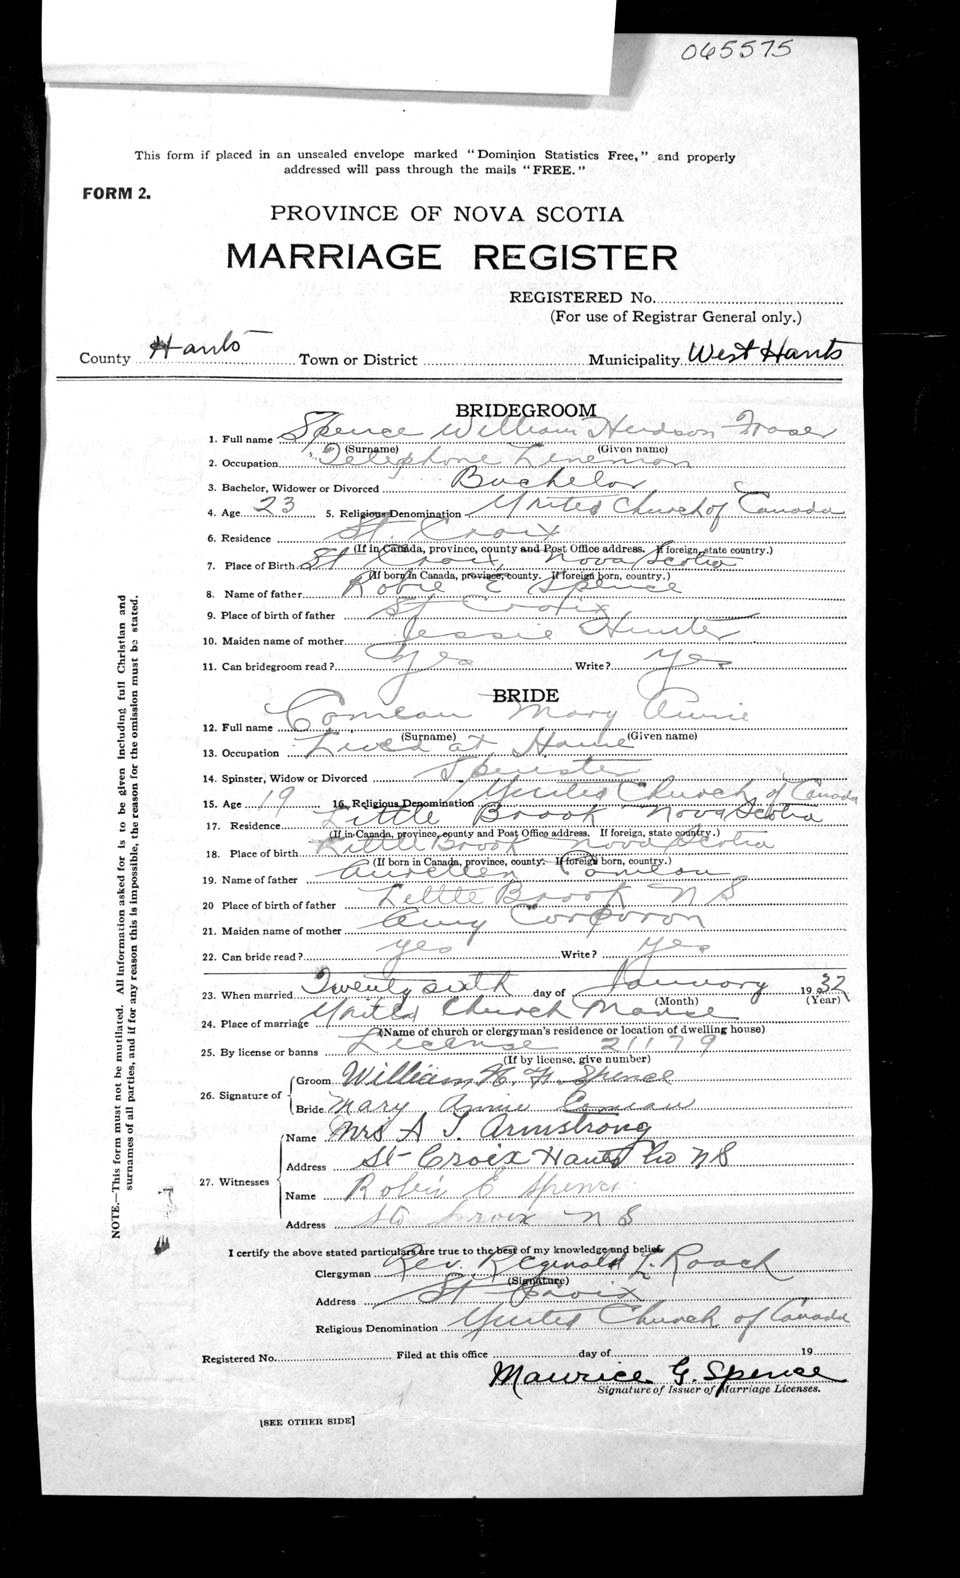 065575
This form if placed in an unsealed envelope marked "Dominion Statistics Free," and properly
addressed will pass through the mails "FREE."
FORM 2.
PROVINCE OF NOVA SCOTIA
MARRIAGE REGISTER
REGISTERED No.
(For use of Registrar General only.)
County Hants Town or District Municipality West Hants
BRIDEGROOM
1. Full name Spence William Hudson Fraser
(Surname) (Given name)
2. Occupation Telephone Lineman
3. Bachelor, Widower or Divorced Bachelor
4. Age 23 5. Religious Denomination United Church of Canada
6. Residence St. Croix
(If in Canada, province, county and Post Office address. If foreign, state country.)
7. Place of Birth St Croix, Nova Scotia
(If born in Canada, province, county. If foreign born, country.)
8. Name of father Robie E Spence
9. Place of birth of father St Croix
10. Maiden name of mother Jessie Hunter
11. Can bridegroom read? Yes Write? Yes
BRIDE
12. Full name Comeau Mary Annie
(Surname) (Given name)
13. Occupation Lived at Home
14. Spinster, Widow or Divorced Spinster
15. Age 19 16. Religious Denomination United Church of Canada
17. Residence Little Brook Nova Scotia
(If in Canada, province, county and Post Office address. If foreign, state country.)
18. Place of birth Little Brook Nova Scotia
(If born in Canada, province, county. If foreign born, country.)
19. Name of father Comeau
20 Place of birth of father Little Brook N S
21. Maiden name of mother Amy Corporon
22. Can bride read? yes Write? yes
23. When married Twenty sixth day of January 1932
(Month) (Year)
24. Place of marriage United Church Manse
(Name of church or clergyman's residence or location of dwelling house)
25. By license or banns License 21179
(If by license, give number)
26. Signature of Groom William H. F. Spence
Bride Mary Annie Comeau
27. Witnesses Name Mrs A T. Armstrong
Address St Croix Hants Co N S
Name Robie E Spence
Address St Croix N S
I certify the above stated particulars are true to the best of my knowledge and belief.
Clergyman Rev. Reginald T. Roach
(Signature)
Address St Croix
Religious Denomination United Church of Canada
Registered No. Filed at this office day of 19
Maurice G. Spence
Signature of Issuer of Marriage Licenses.
[SEE OTHER SIDE]
NOTE.—This form must not be mutilated. All information asked for is to be given including full Christian and
surnames of all parties, and if for any reason this is impossible, the reason for the omission must be stated.